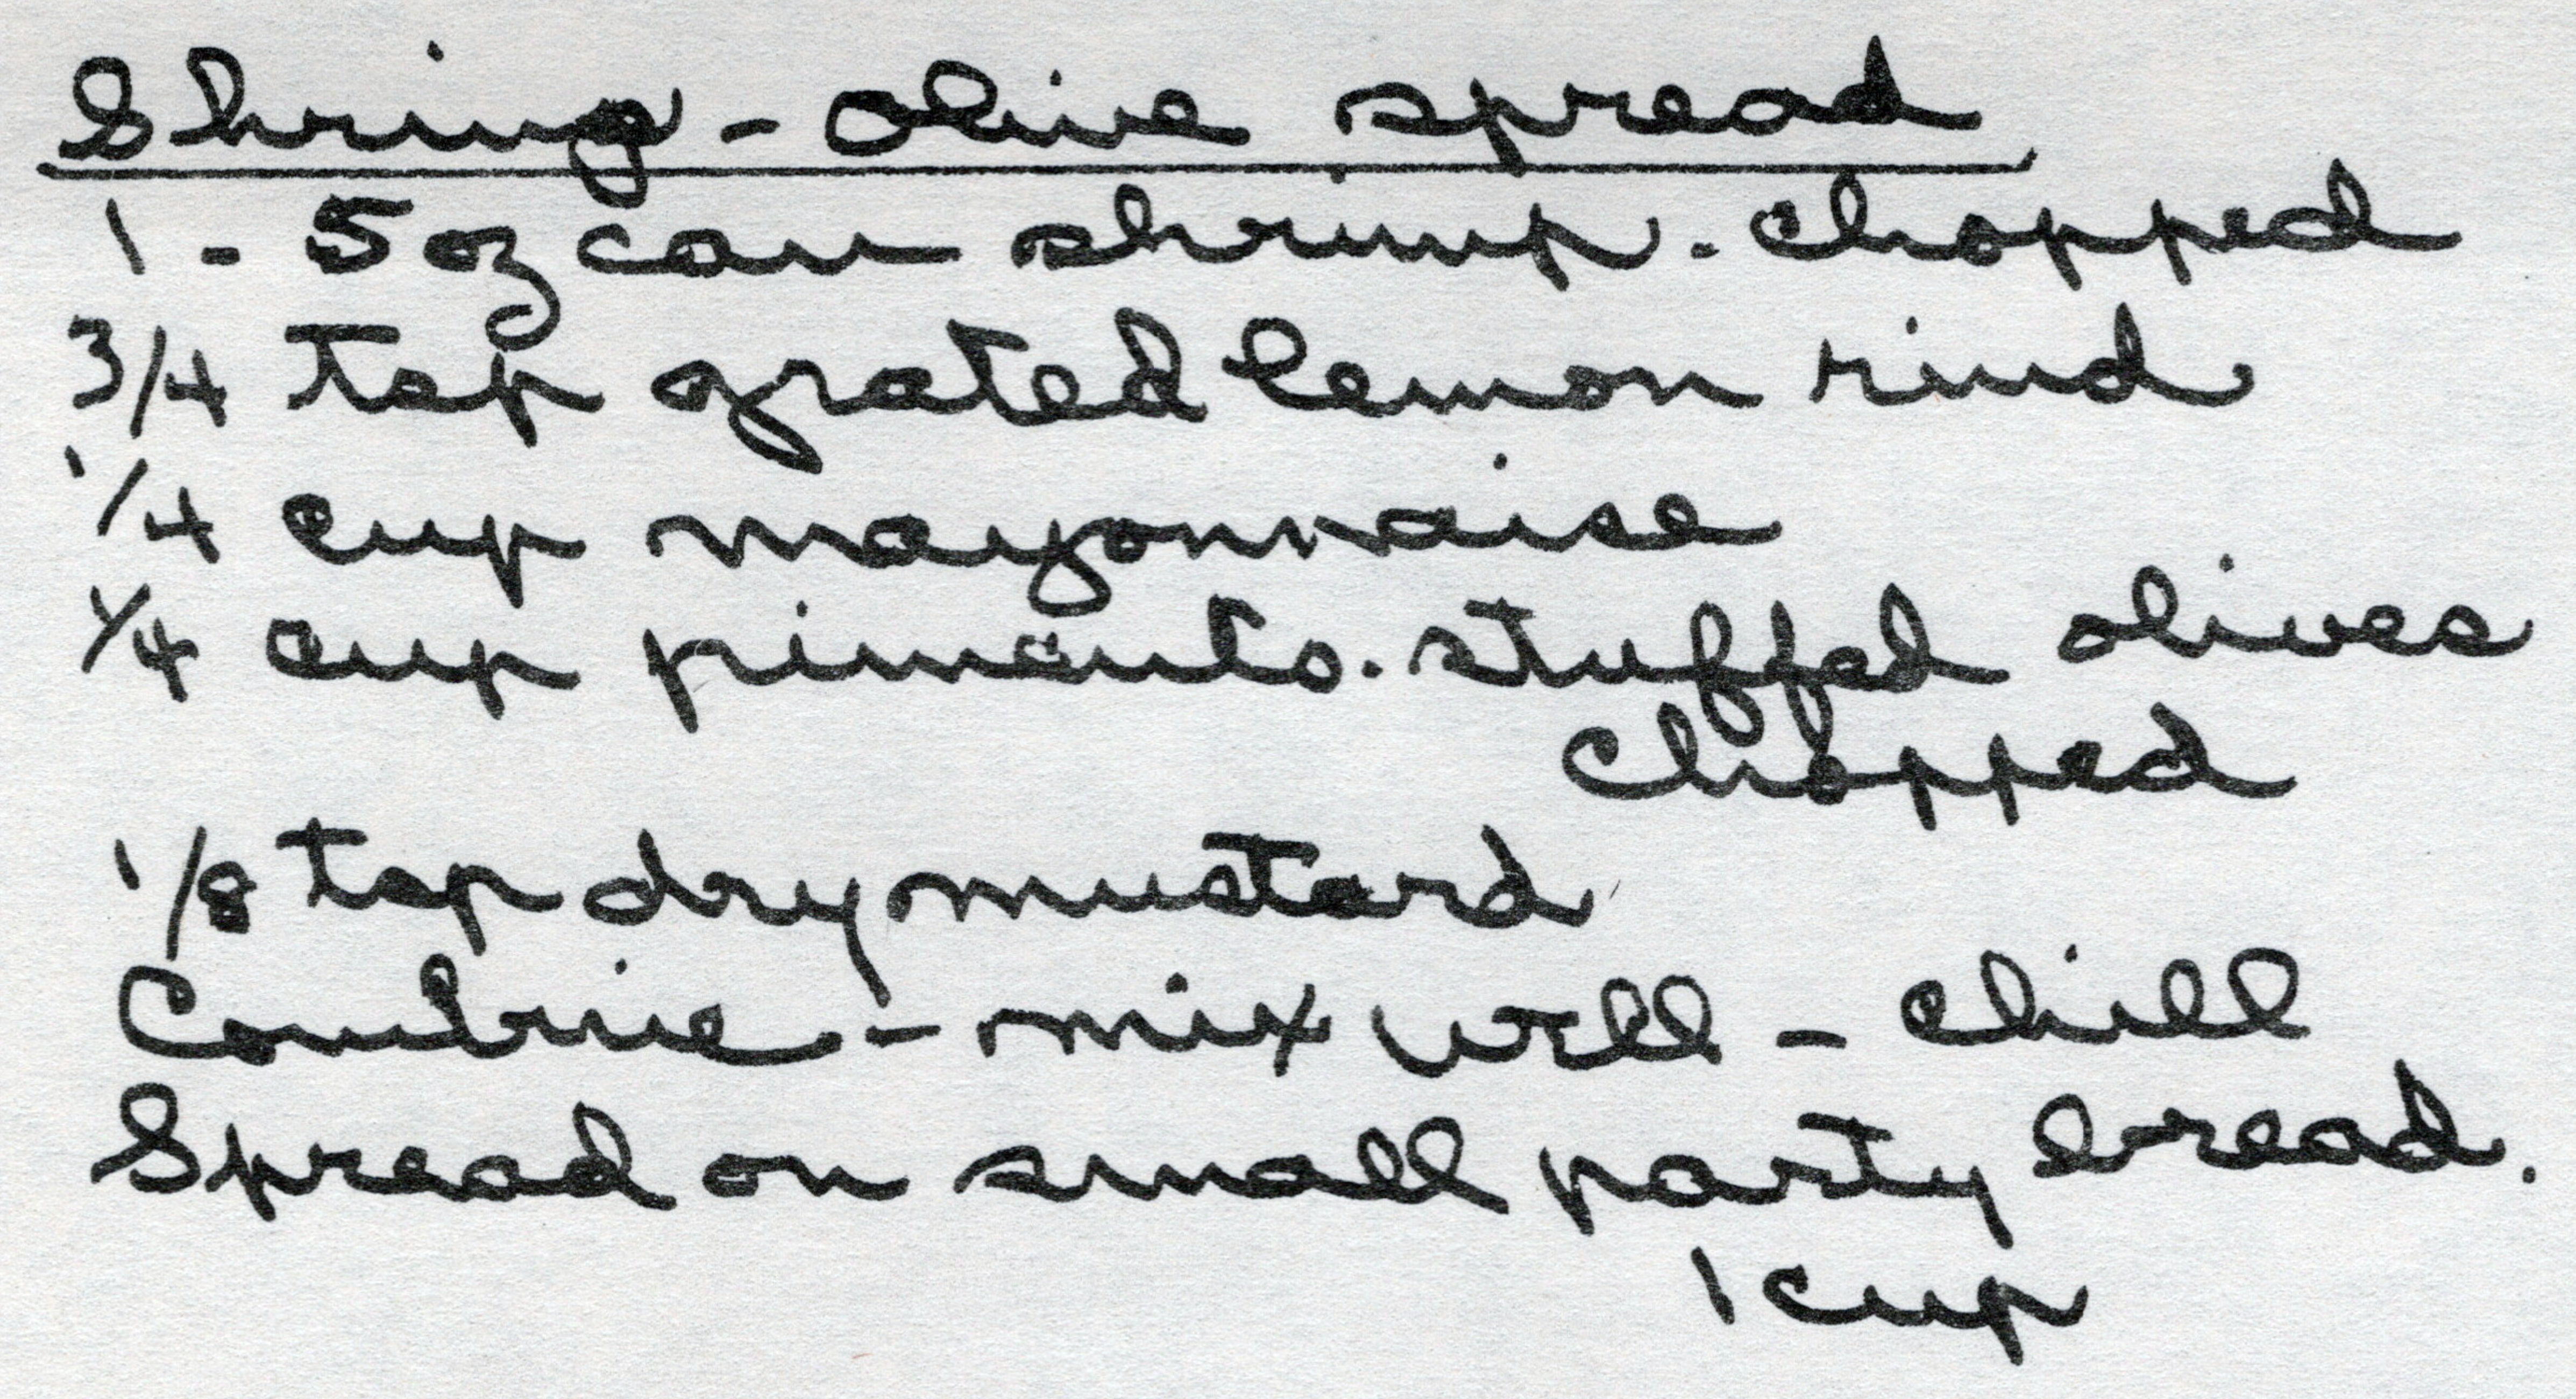 Shrimp - Olive spread
1 - 5 oz can shrimp - chopped
3/4 tsp grated lemon rind
1/4 cup mayonnaise
1/4 cup pimento-stuffed olives
chopped
1/8 tsp dry mustard
Combine - mix well - chill
Spread on small party bread.
1 cup